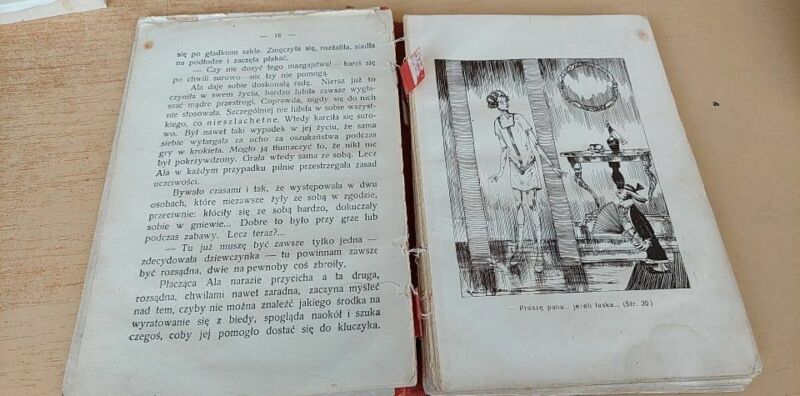 — 16 —
się po gładkiem szkle. Zmęczyła się, rozżaliła, siadła
na podłodze i zaczęła płakać.
— Czy nie dosyć tego mazgajstwa! — karci się
po chwili surowo — nic łzy nie pomogą.
Ala daje sobie doskonałą radę. Nieraz już to
czyniła w swem życiu, bardzo lubiła zawsze wygła-
szać mądre przestrogi. Coprawda, nigdy się do nich
nie stosowała. Szczególniej nie lubiła w sobie wszyst-
kiego, co nieszlachetne. Wtedy karciła się suro-
wo. Był nawet taki wypadek w jej życiu, że sama
siebie wytargała za ucho za oszukaństwa podczas
gry w krokieta. Mogło ją tłumaczyć to, że nikt nie
był pokrzywdzony. Grała wtedy sama ze sobą. Lecz
Ala w każdym przypadku pilnie przestrzegała zasad
uczciwości.
Bywało czasami i tak, że występowała w dwu
osobach, które niezawsze żyły ze sobą w zgodzie,
przeciwnie: kłóciły się ze sobą bardzo, dokuczały
sobie w gniewie... Dobre to było przy grze lub
podczas zabawy. Lecz teraz?...
— Tu już muszę być zawsze tylko jedna —
zdecydowała dziewczynka — tu powinnam zawsze
być rozsądna, dwie na pewnoby coś zbroiły.
Płacząca Ala narazie przycicha a ta druga,
rozsądna, chwilami nawet zaradna, zaczyna myśleć
nad tem, czyby nie można znaleźć jakiego środka na
wyratowanie się z biedy, spogląda naokół i szuka
czegoś, coby jej pomogło dostać się do kluczyka.
— Proszę pana... jeżeli łaska... (Str. 20.)